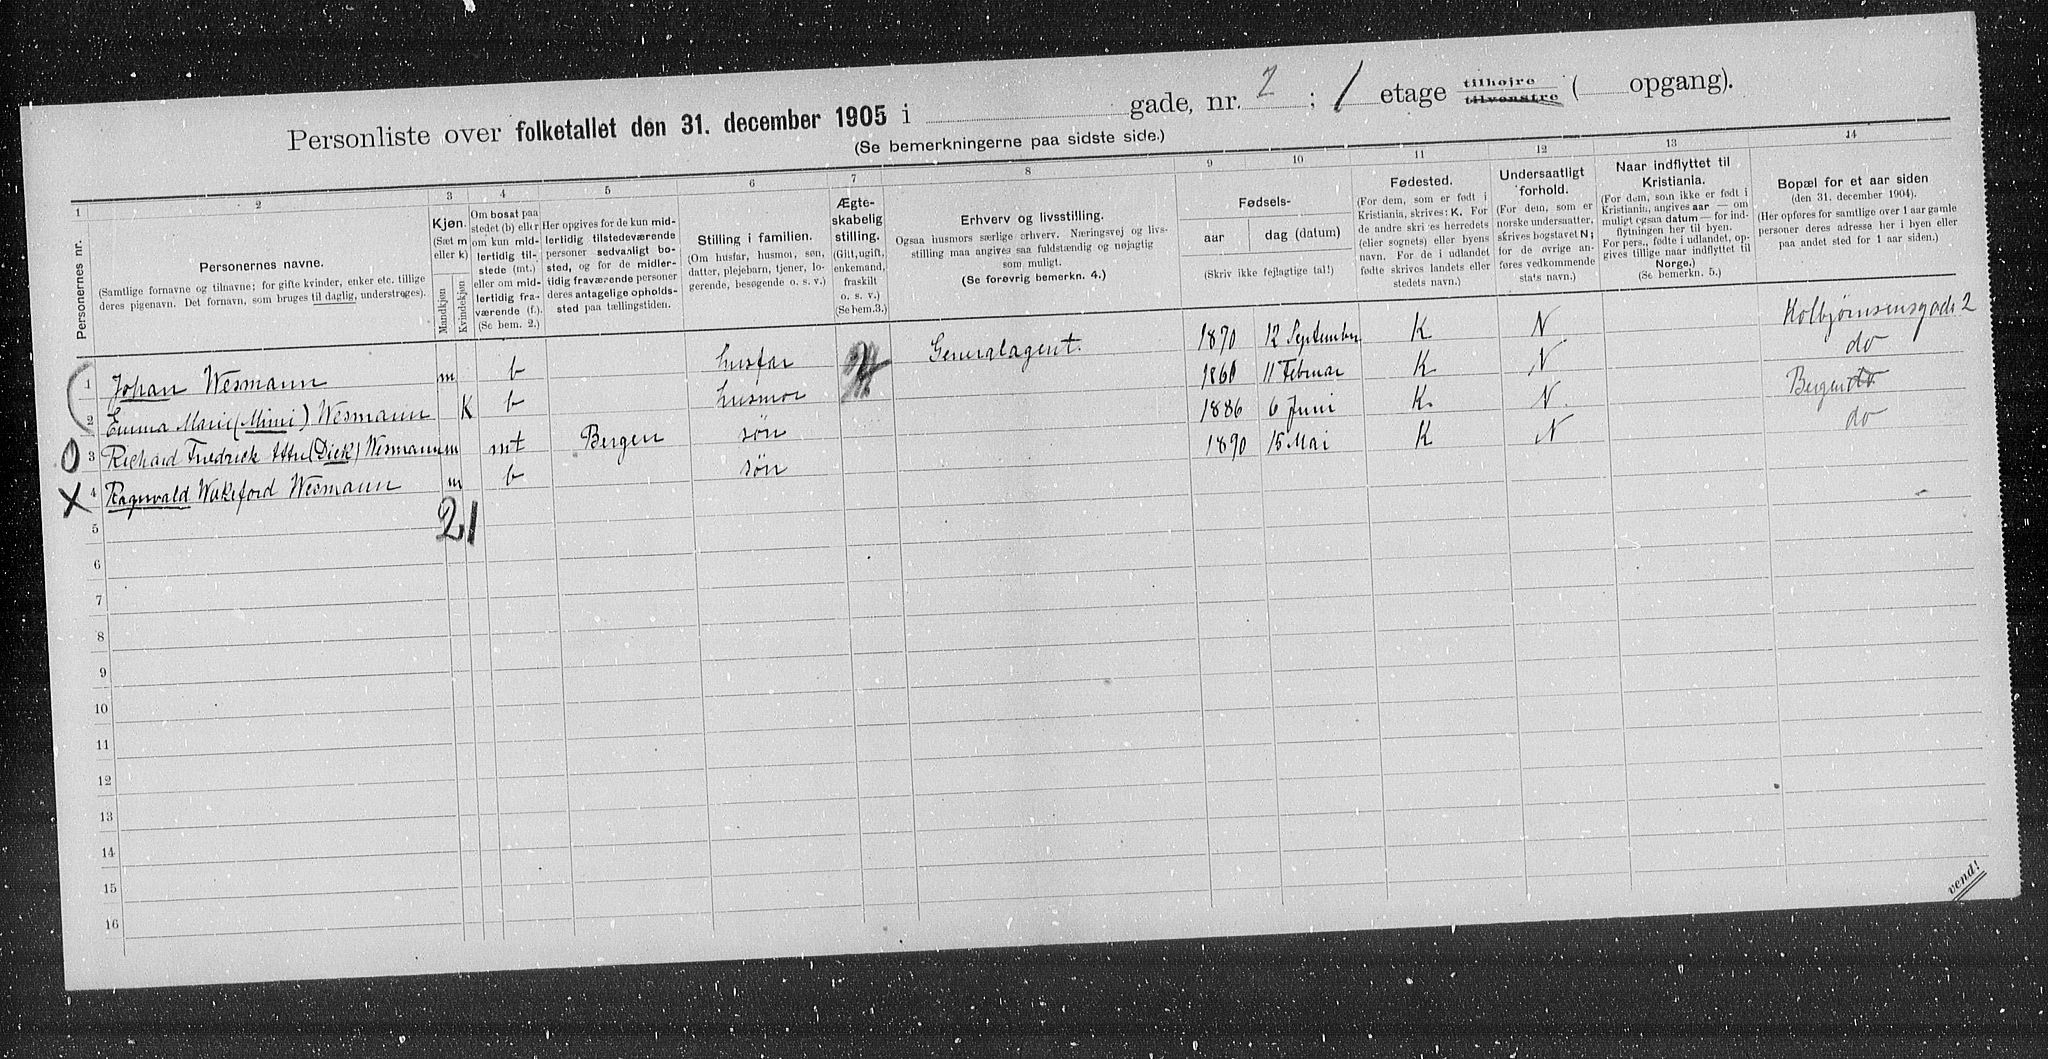 Personliste over folketallet den 31. december 1905 i gade, nr. 2 ; 1 etage tilhøjre tilvenstre ( opgang).
(Se bemerkningerne paa sidste side.)
1 2 3 4 5 6 7 8 9 10 11 12 13 14
Personernes nr.
Personernes navne.
(Samtlige fornavne og tilnavne; for gifte kvinder, enker etc. tillige
deres pigenavn. Det fornavn, som bruges til daglig, understreges).
Kjøn.
(Sæt m
eller k)
Mandkjøn
Kvindekjøn
Om bosat paa
stedet (b) eller
om kun mid-
lertidig til-
stede (mt.)
eller om mid-
lertidig fra-
værende (f.)
(Se bem. 2.)
Her opgives for de kun mid-
lertidig tilstedeværende
personer sedvanligt bo-
sted, og for de midler-
tidig fraværende personer
deres antagelige opholds-
sted paa tællingstiden.
Stilling i familien.
(Om husfar, husmor, søn,
datter, plejebarn, tjener, lo-
gerende, besøgende o. s. v.)
Ægte-
skabelig
stilling.
(Gift, ugift,
enkemand,
fraskilt
o. s. v.)
(Se bem.3.)
Erhverv og livsstilling.
Ogsaa husmors særlige erhverv. Næringsvej og livs-
stilling maa angives saa fuldstændig og nøjagtig
som muligt.
(Se forøvrig bemerkn. 4.)
Fødsels-
aar dag (datum)
(Skriv ikke fejlagtige tal!)
Fødested.
(For dem, som er født i
Kristiania, skrives: K. For
de andre skrives herredets
(eller sognets) eller byens
navn. For de i udlandet
fødte skrives landets eller
stedets navn.)
Undersaatligt
forhold.
(For dem, som er
norske undersaatter,
skrives bogstavet N;
for de øvrige an-
føres vedkommende
stats navn.)
Naar indflyttet til
Kristiania.
(For dem, som ikke er født i
Kristiania, angives aar — om
muligt ogsaa datum — for ind-
flytningen her til byen.
For pers., fødte i udlandet, op-
gives tillige naar indflyttet til
Norge.)
(Se bemerkn. 5.)
Bopæl for et aar siden
(den 31. december 1904).
(Her opføres for samtlige over 1 aar gamle
personer deres adresse her i byen eller
paa andet sted for 1 aar siden.)
1 Johan Wesmann m b husfar Generalagent. 1870 12 September K N Holbjørnsensgade 2
2 Emma Marie (Mimi) Wesmann K b husmor 11 Februar K N do
3 Richard Fredrick (Dick) Wesmann m mt Bergen søn 1886 6 Juni K. N. Bergen do
4 Ragnvald Wakeford Wesmann m b søn 1890 15 Mai K N do
X
21
5
6
7
8
9
10
11
12
13
14
15
16
vend!